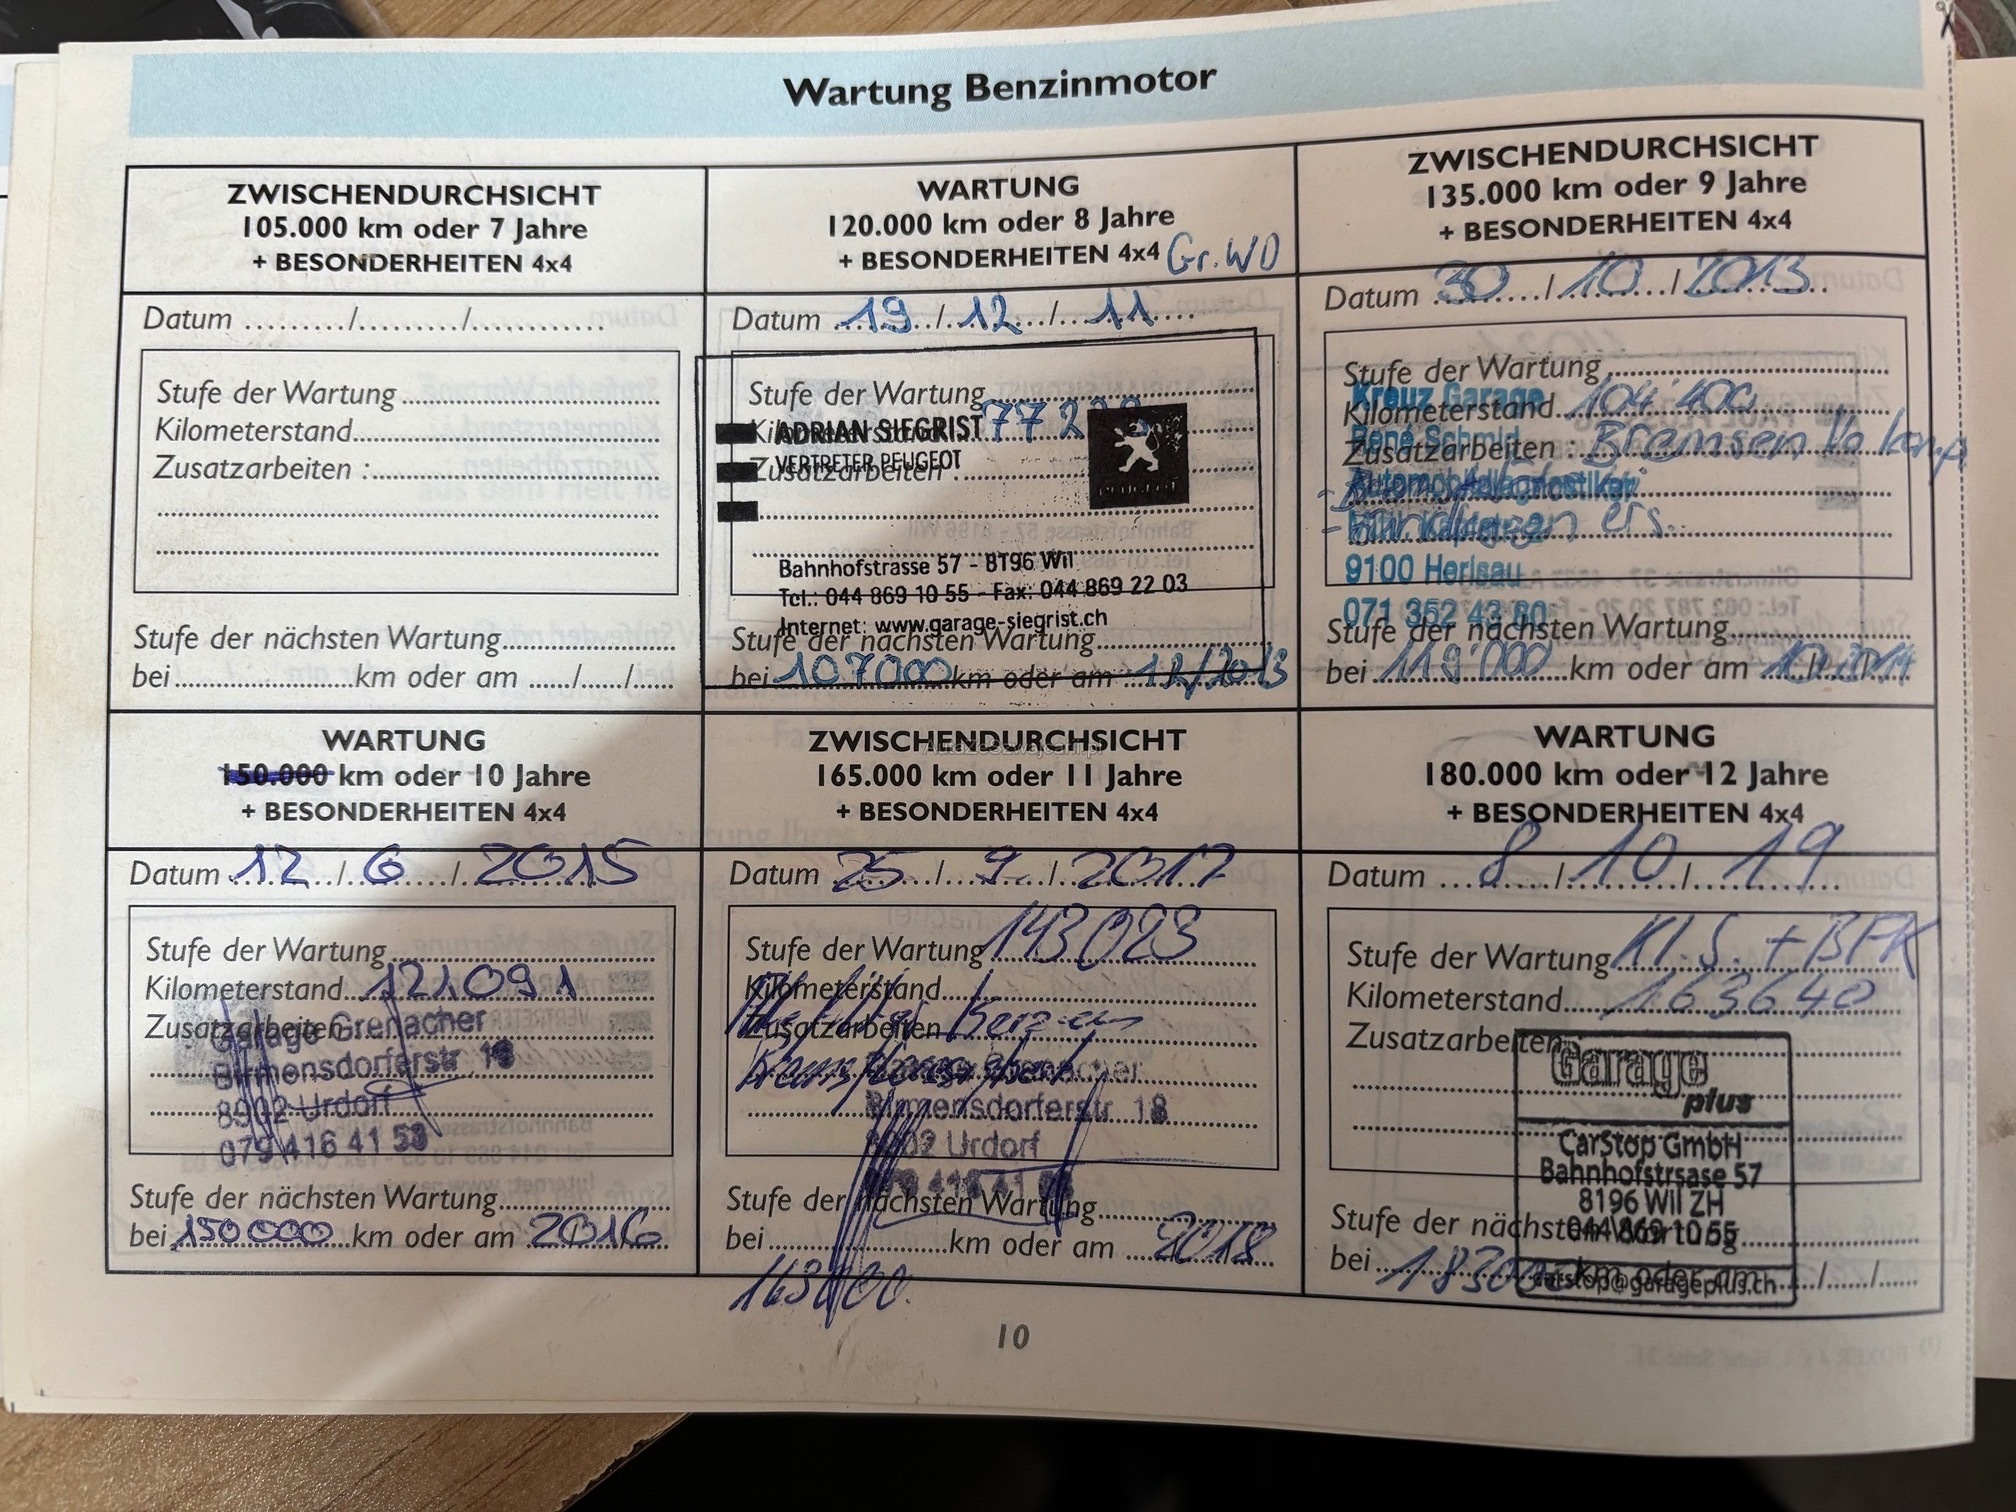 Wartung Benzinmotor
ZWISCHENDURCHSICHT
105.000 km oder 7 Jahre
+ BESONDERHEITEN 4x4
Datum ........./........../............
Stufe der Wartung
Kilometerstand
Zusatzarbeiten :
Stufe der nächsten Wartung
bei ........ km oder am ....../....../......
WARTUNG
120.000 km oder 8 Jahre
+ BESONDERHEITEN 4x4 Gr.WD
Datum 19 / 12 / 11
Stufe der Wartung
Kilometerstand 77 2
ADRIAN SIEGRIST
Zusatzarbeiten :
VERTRETER PEUGEOT
PEUGEOT
Bahnhofstrasse 57 - 8196 Wil
Tel.: 044 869 10 55 - Fax: 044 869 22 03
Internet: www.garage-siegrist.ch
Stufe der nächsten Wartung
bei 107000 km oder am 12/2013
ZWISCHENDURCHSICHT
135.000 km oder 9 Jahre
+ BESONDERHEITEN 4x4
Datum 30 / 10 / 2013
Stufe der Wartung
Kreuz Garage
Kilometerstand 104'400
René Schmid
Zusatzarbeiten : Bremsen
Automobildiagnostiker
ers.
9100 Herisau
071 352 43 80
Stufe der nächsten Wartung
bei 119'000 km oder am 10/2014
WARTUNG
150.000 km oder 10 Jahre
+ BESONDERHEITEN 4x4
Datum 12 / 6 / 2015
Stufe der Wartung
Kilometerstand 121091
Zusatzarbeiten
Garage Grenacher
Birmensdorferstr 18
8902 Urdorf
079 416 41 53
Stufe der nächsten Wartung
bei 150000 km oder am 2016
ZWISCHENDURCHSICHT
AutazeSzwajcarii.pl
165.000 km oder 11 Jahre
+ BESONDERHEITEN 4x4
Datum 25 / 9 / 2017
Stufe der Wartung 143023
Kilometerstand
Zusatzarbeiten
Grenacher
Birmensdorferstr 18
8902 Urdorf
Stufe der nächsten Wartung
bei ........ km oder am 2018
163000
WARTUNG
180.000 km oder 12 Jahre
+ BESONDERHEITEN 4x4
Datum 8 / 10 / 19
Stufe der Wartung Kl.S. + BFK
Kilometerstand 163640
Zusatzarbeiten
Garage
plus
CarStop GmbH
Bahnhofstrsase 57
8196 Wil ZH
044 869 10 55
Stufe der nächsten Wartung
carstop@garageplus.ch
bei 183000 km oder am ....../....../......
10